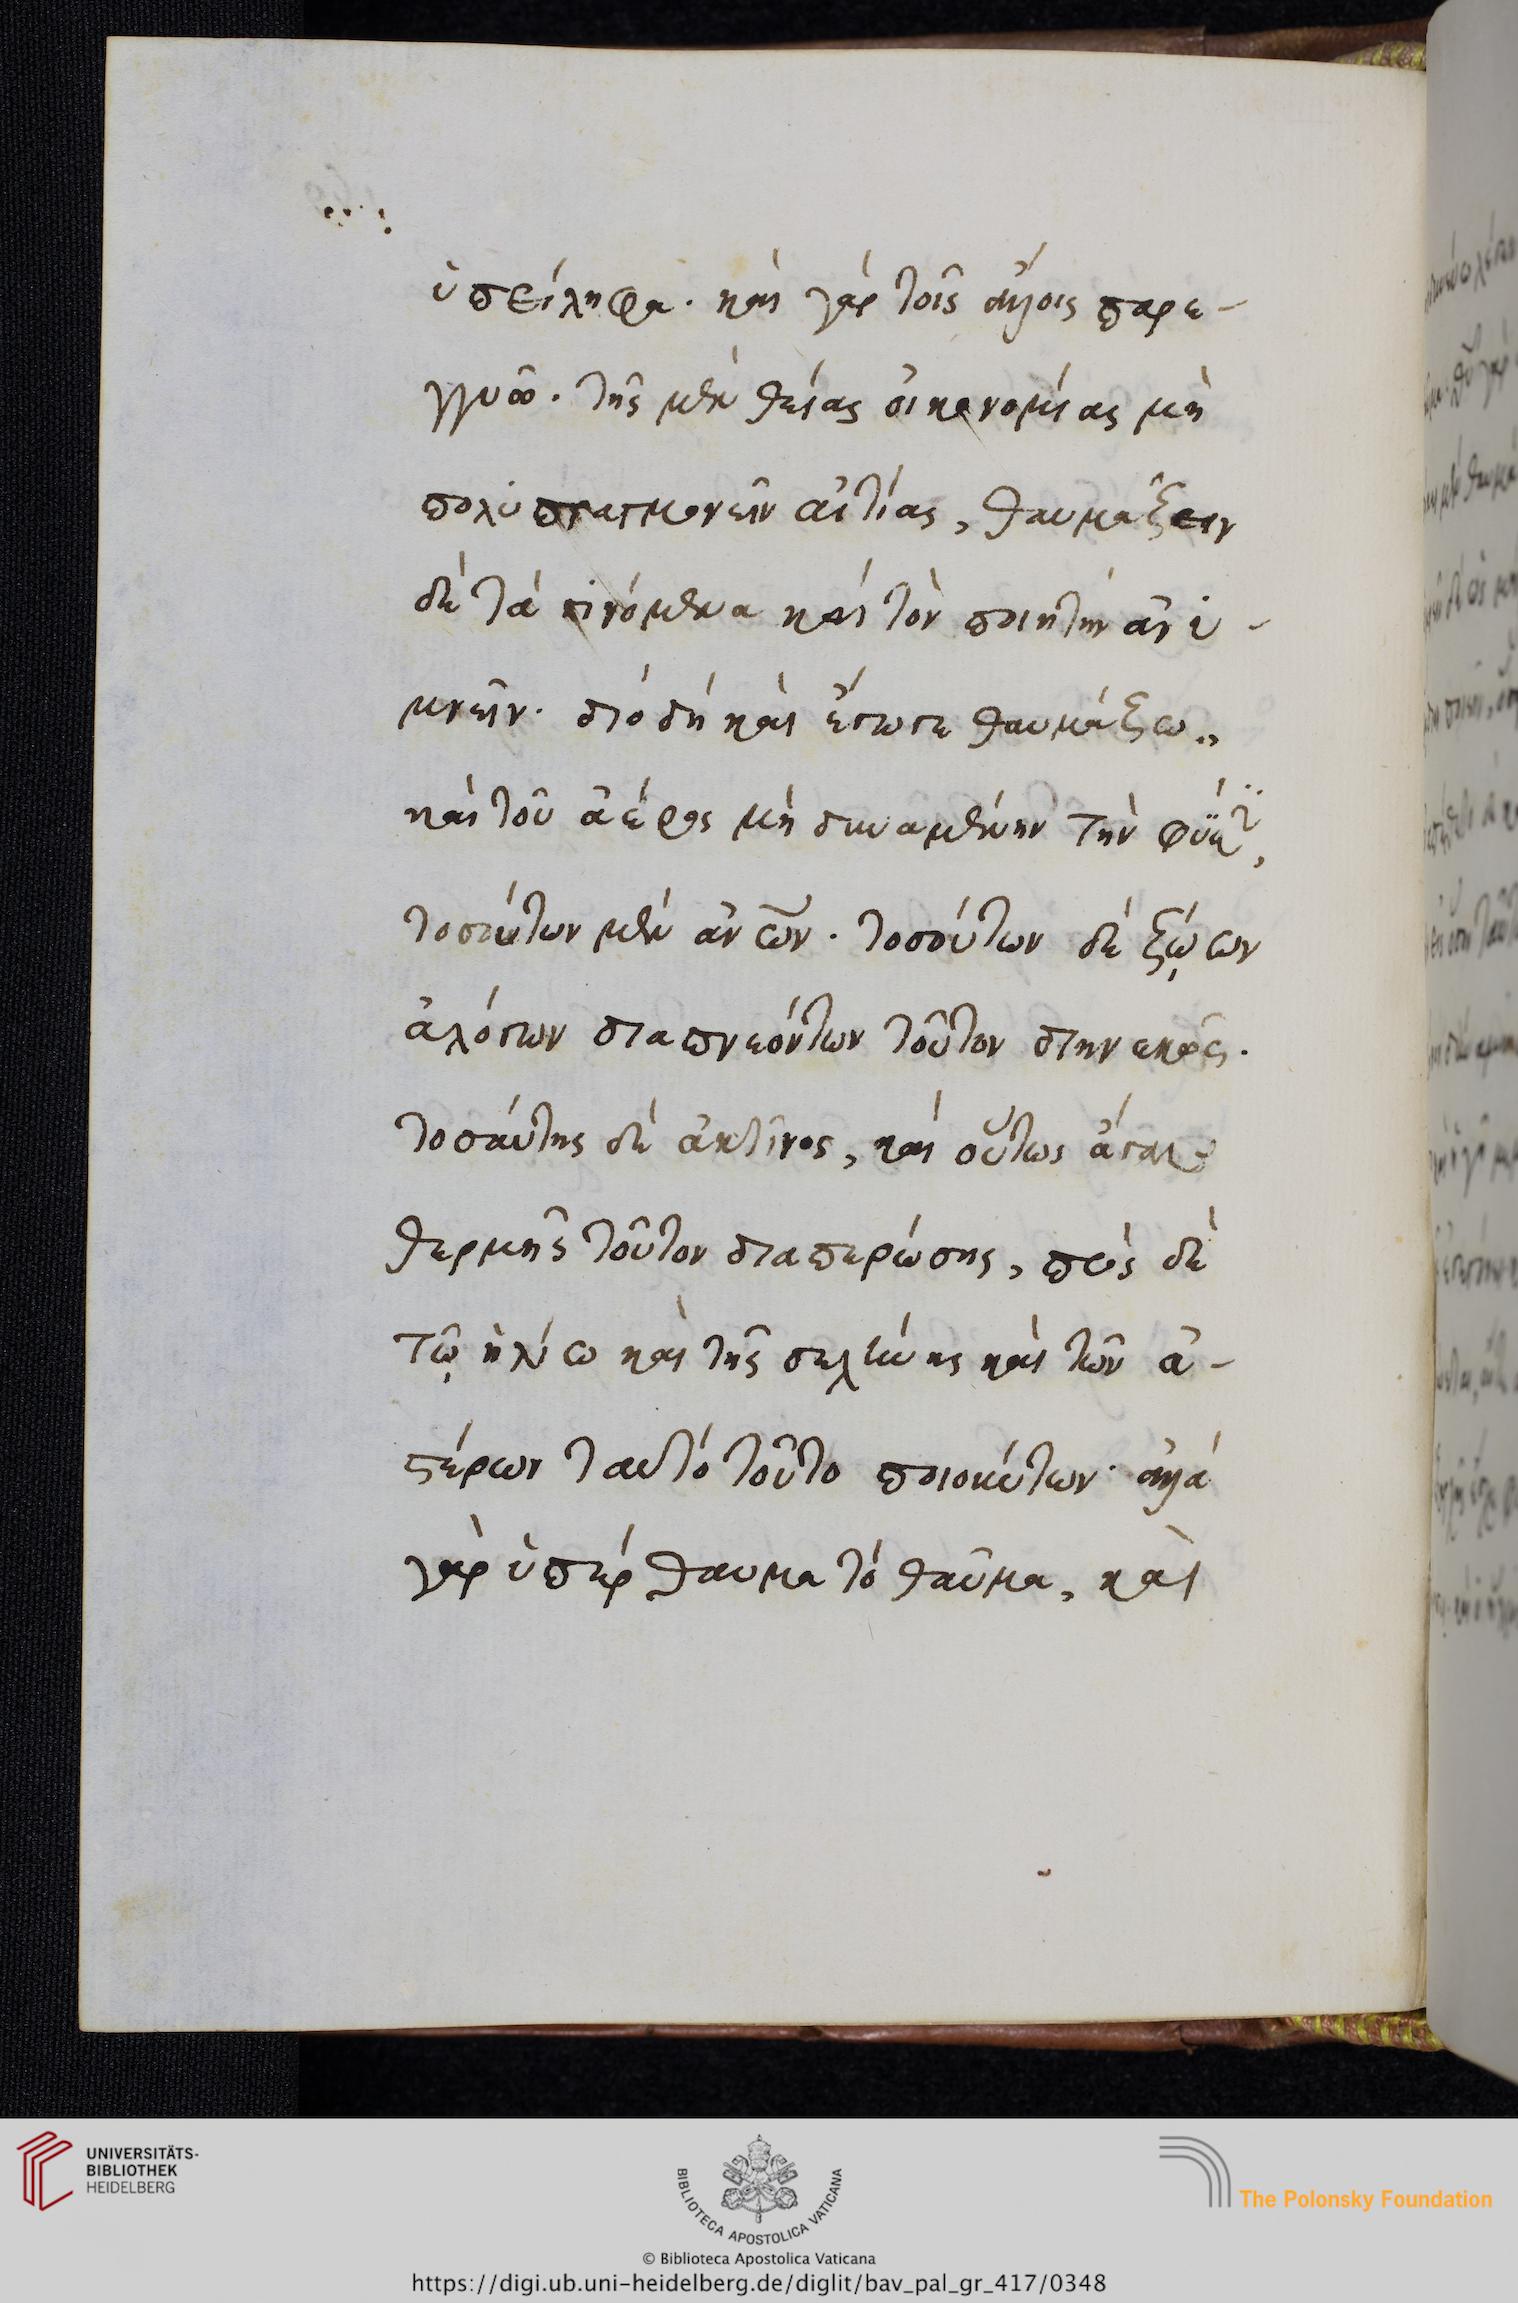 ὑπείληφα. καὶ γὰρ τοῖς ἄλλοις παρε-
γγυῶ. τῆς μὲν θείας οἰκονομίας μὴ
πολυπραγμονεῖν αἰτίας, θαυμάζειν
δὲ τὰ γινόμενα καὶ τὸν ποιητὴν ἀνυ-
μνεῖν. διὸ δὴ καὶ ἔγωγε θαυμάζω,
καὶ τοῦ ἀέρος μὴ δυναμένην τὴν φύσιν,
τοσούτων μὲν ἀνων. τοσούτων δὲ ζώων
ἀλόγων διαπνεόντων τοῦτον διηνεκῶς.
τοσαύτης δὲ ἀκτῖνος, καὶ οὕτως ἄγαν
θερμῆς τοῦτον διαπερώσης, πρὸς δὲ
τῷ ἡλίω καὶ τῆς σελήνης καὶ τῶν ἀ-
στέρων ταυτὸ τοῦτο ποιούντων. ἀλλὰ
γὰρ ὑπὲρ θαυμα τὸ θαῦμα, καὶ
UNIVERSITÄTS-
BIBLIOTHEK
HEIDELBERG
BIBLIOTECA APOSTOLICA VATICANA
The Polonsky Foundation
© Biblioteca Apostolica Vaticana
https://digi.ub.uni-heidelberg.de/diglit/bav_pal_gr_417/0348